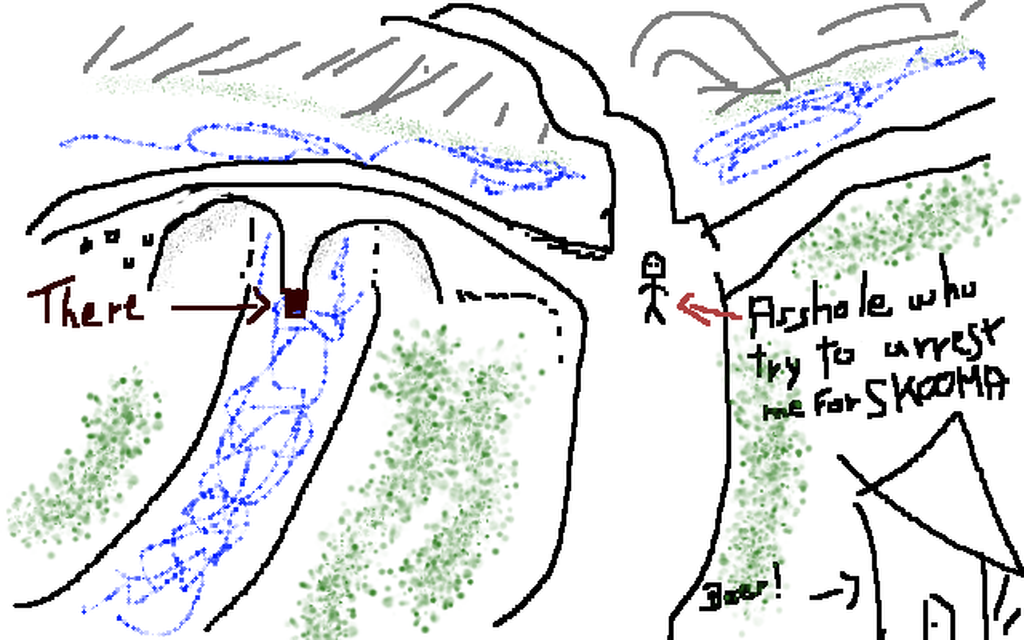 There
Asshole who
try to arrest
me For SKOOMA
Beer!